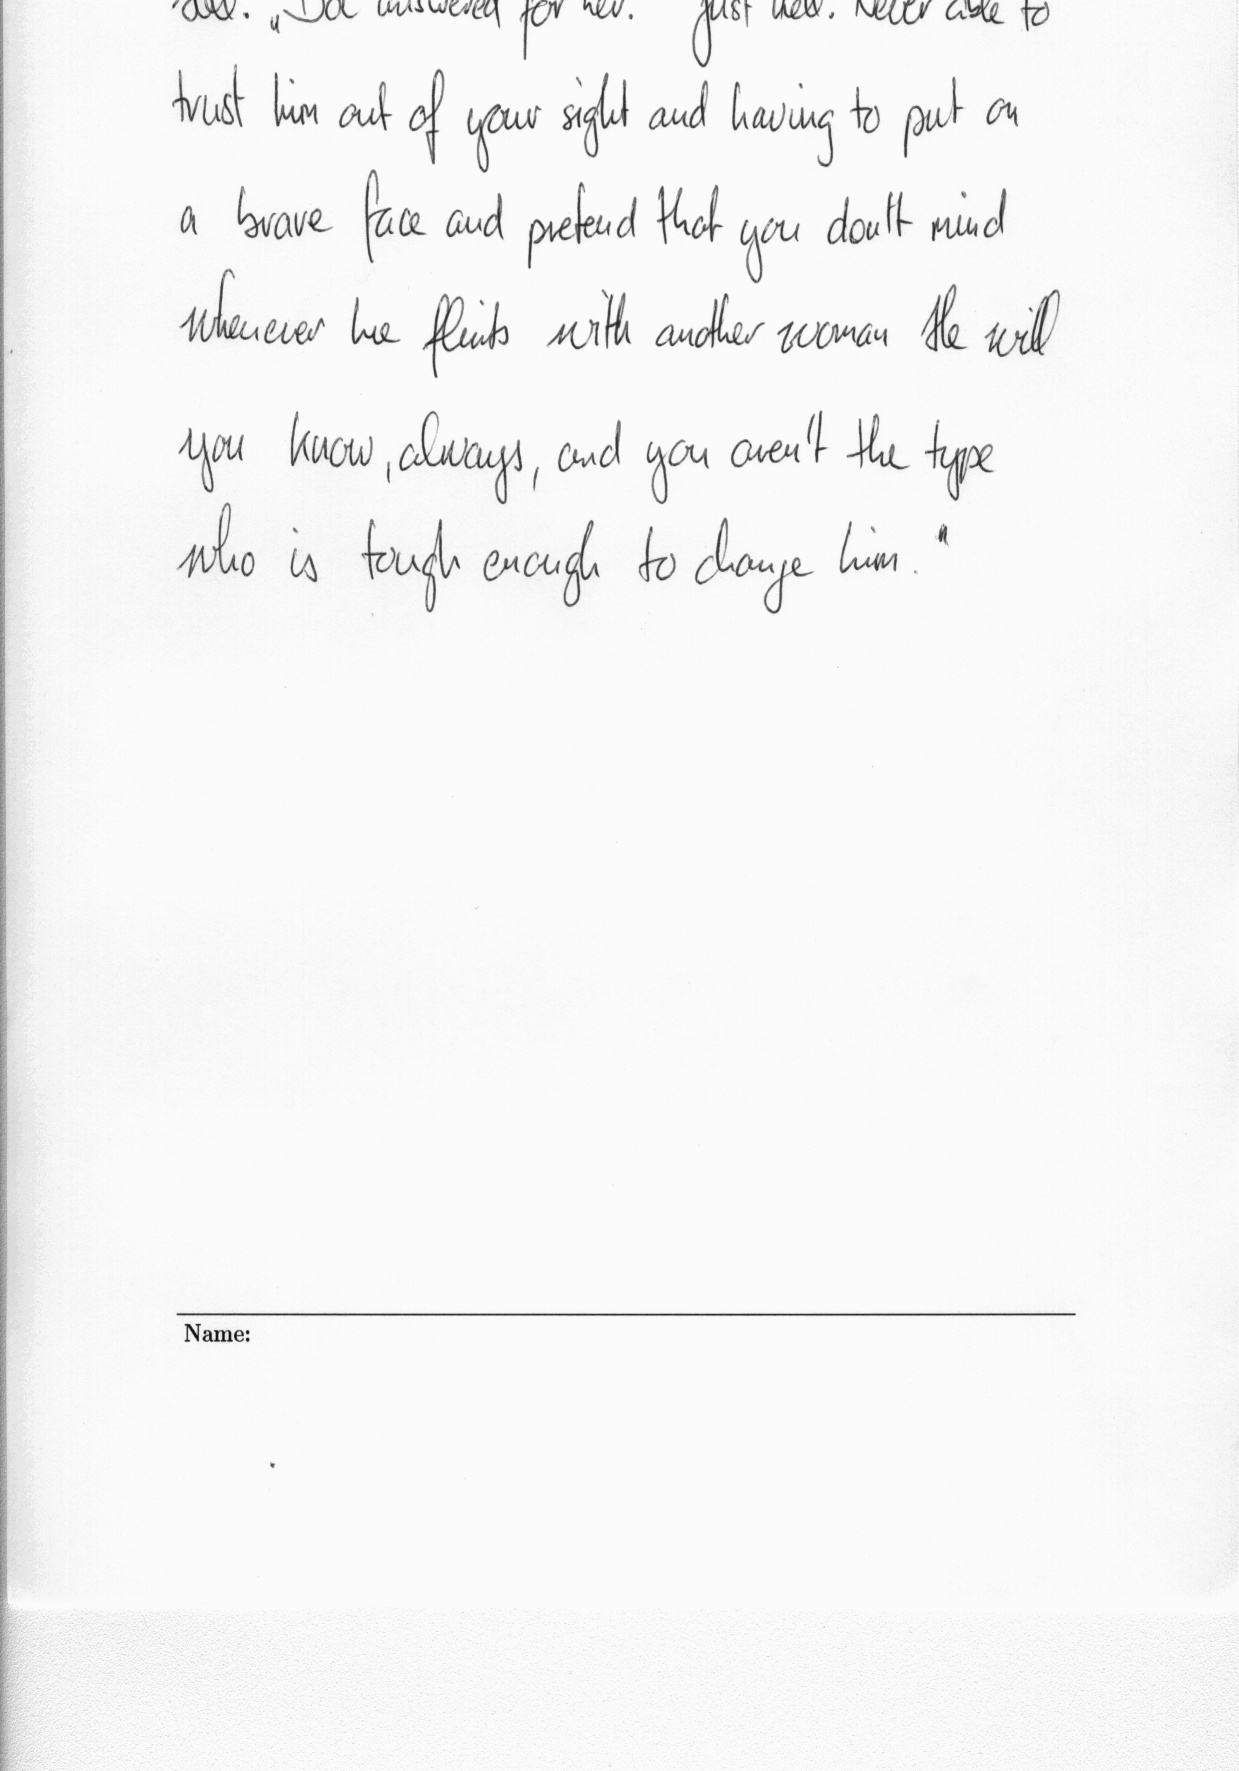 answered for her. Just hell. Never able to
trust him out of your sight and having to put on
a brave face and pretend that you don't mind
whenever he flirts with another woman He will
you know, always, and you aren't the type
who is tough enough to change him."
Name: